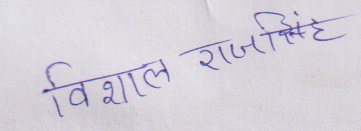 विशाल राजसिंह